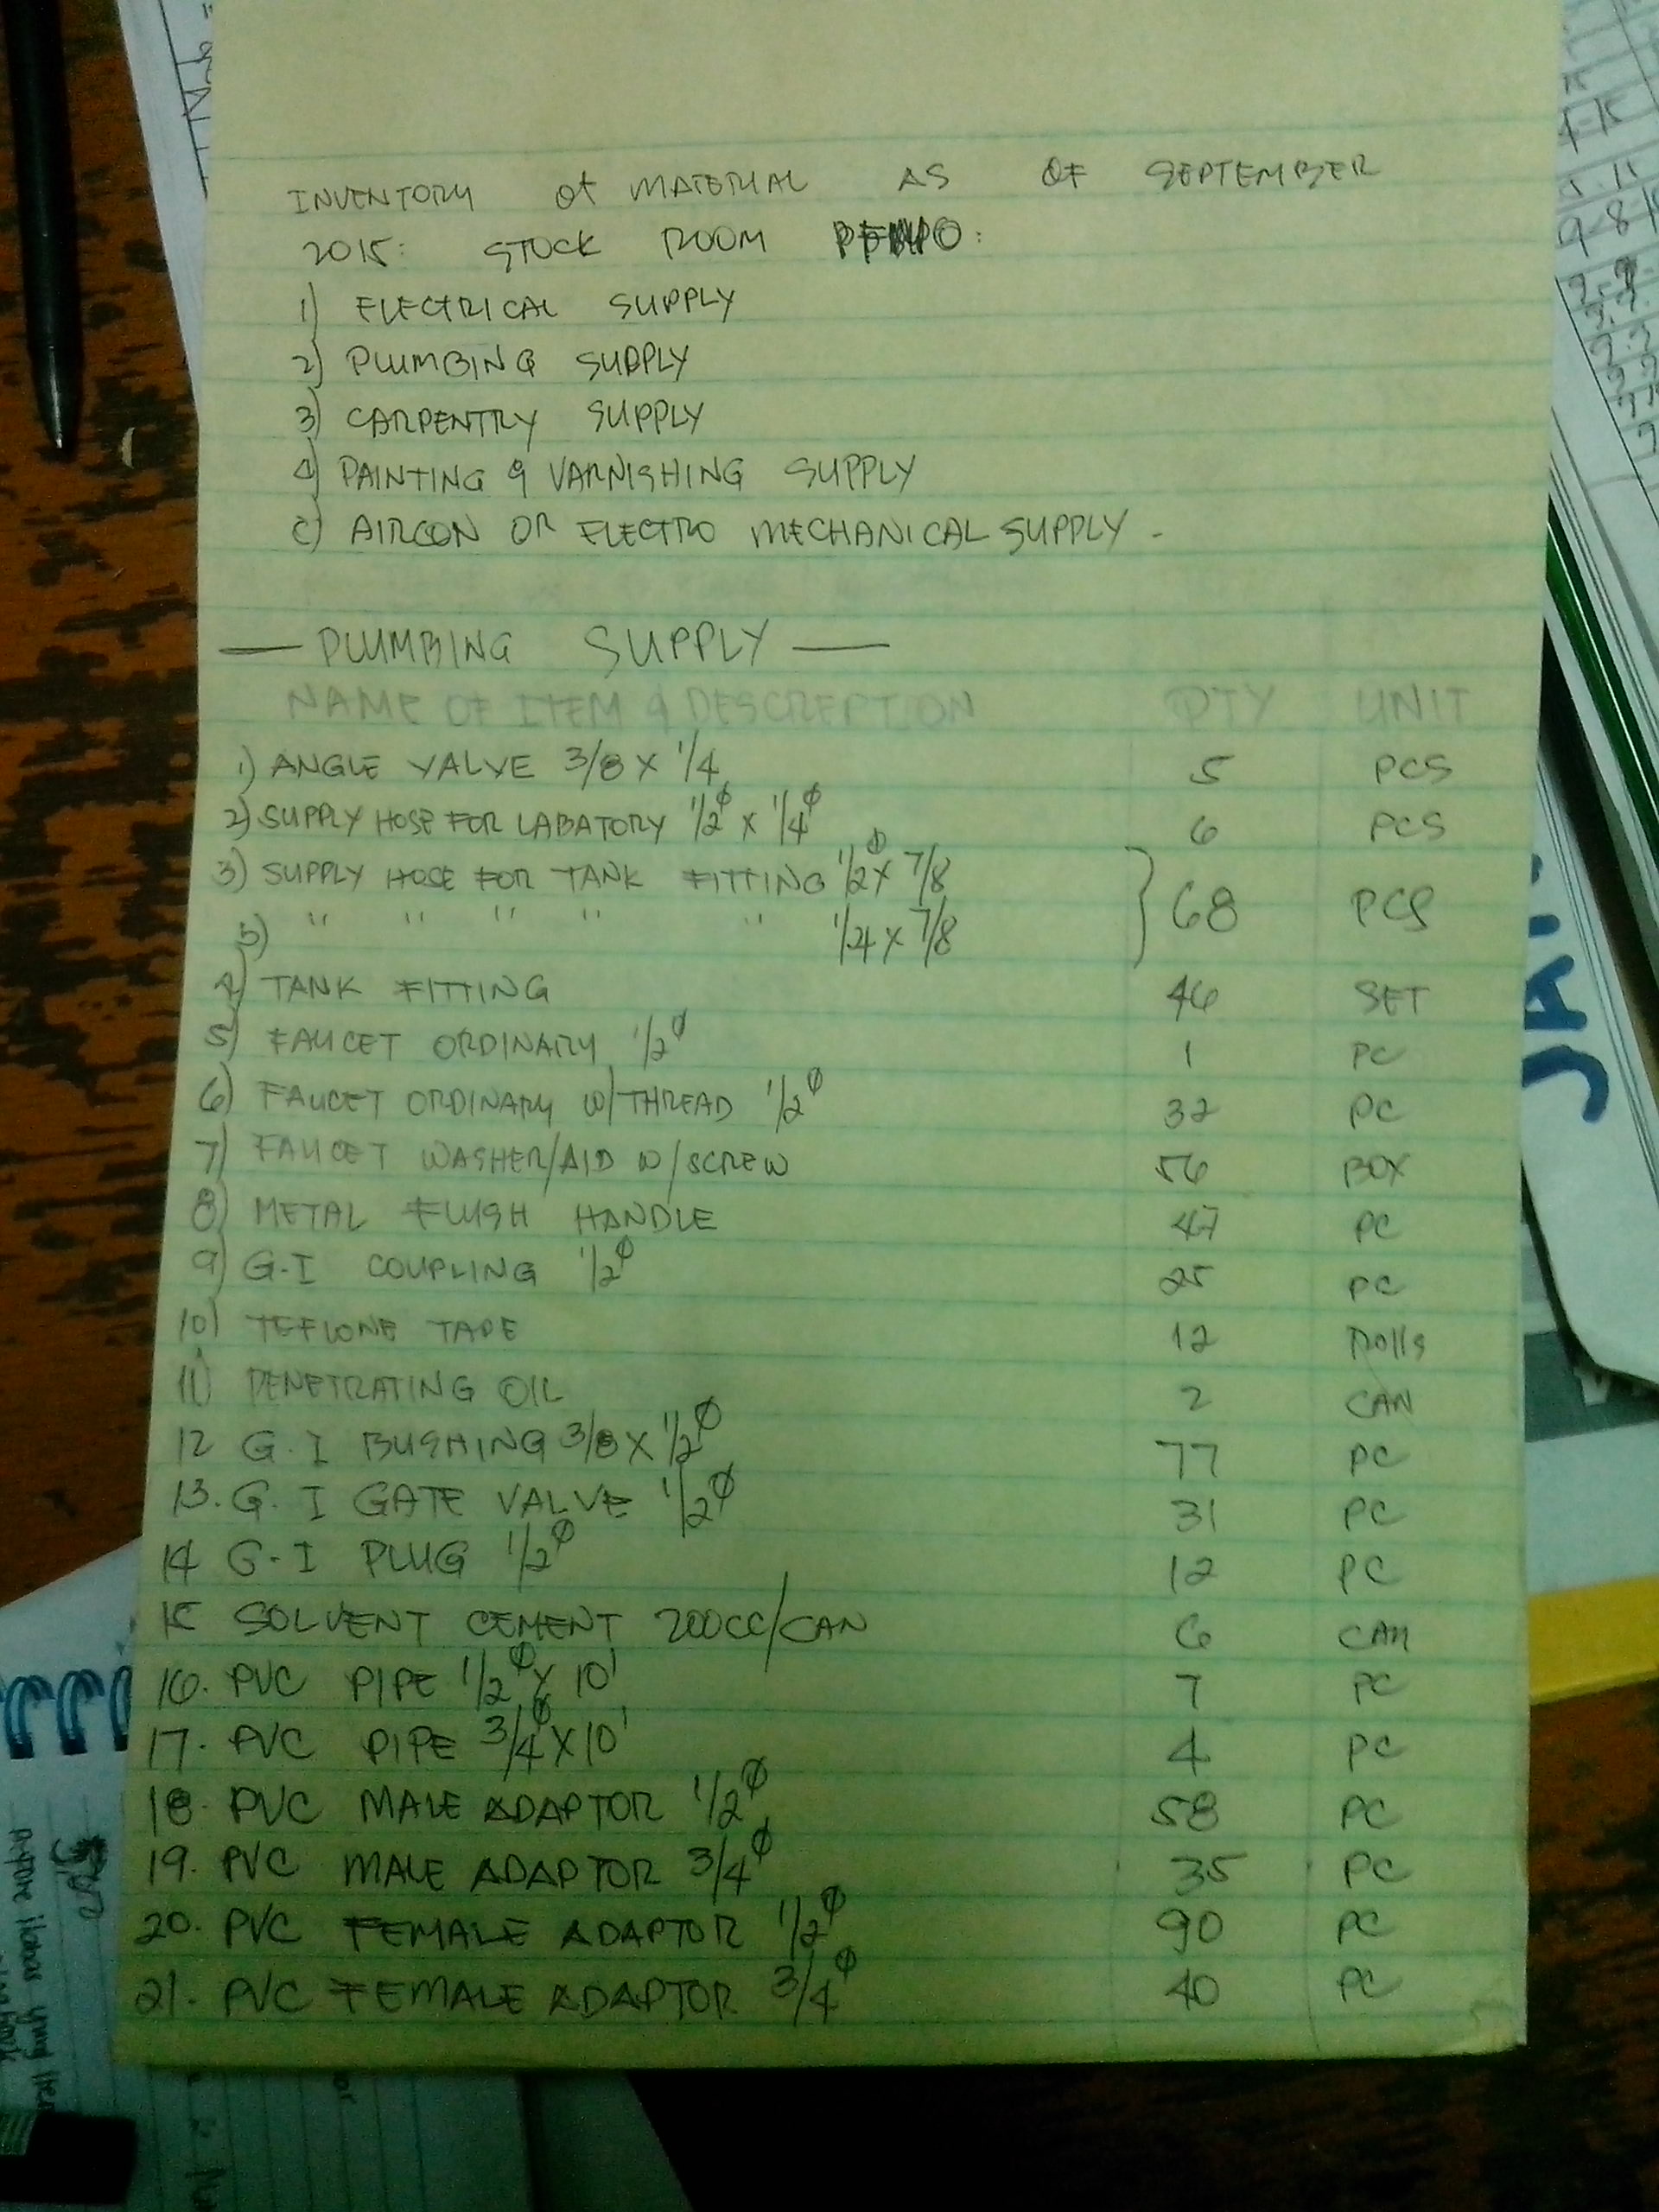 INVENTORY of MATERIAL AS OF SEPTEMBER
2015: STOCK ROOM
1) ELECTRICAL SUPPLY
2) PLUMBING SUPPLY
3) CARPENTRY SUPPLY
4) PAINTING & VARNISHING SUPPLY
5) AIRCON OR ELECTRO MECHANICAL SUPPLY.
— PLUMBING SUPPLY —
NAME OF ITEM & DESCREPTION QTY UNIT
1) ANGLE VALVE 3/8 X 1/4 5 PCS
2) SUPPLY HOSE FOR LABATORY 1/2ø X 1/4ø 6 PCS
3) SUPPLY HOSE FOR TANK FITTING 1/2ø X 7/8 } 68 PCS
b) " " " " " 1/4 X 7/8
4) TANK FITTING 46 SET
5) FAUCET ORDINARY 1/2ø 1 PC
6) FAUCET ORDINARY W/THREAD 1/2ø 32 PC
7) FAUCET WASHER/AID W/SCREW 56 BOX
8) METAL FLUSH HANDLE 47 PC
9) G-I COUPLING 1/2ø 25 PC
10) TEFLONE TAPE 12 Rolls
11) PENETRATING OIL 2 CAN
12 G.I BUSHING 3/8 X 1/2ø 77 PC
13. G.I GATE VALVE 1/2ø 31 PC
14 G-I PLUG 1/2ø 12 PC
15 SOLVENT CEMENT 200CC/CAN 6 CAN
16. PVC PIPE 1/2ø X 10' 7 PC
17. PVC PIPE 3/4ø X 10' 4 PC
18. PVC MALE ADAPTOR 1/2ø 58 PC
19. PVC MALE ADAPTOR 3/4ø 35 PC
20. PVC FEMALE ADAPTOR 1/2ø 90 PC
21. PVC FEMALE ADAPTOR 3/4ø 40 PC